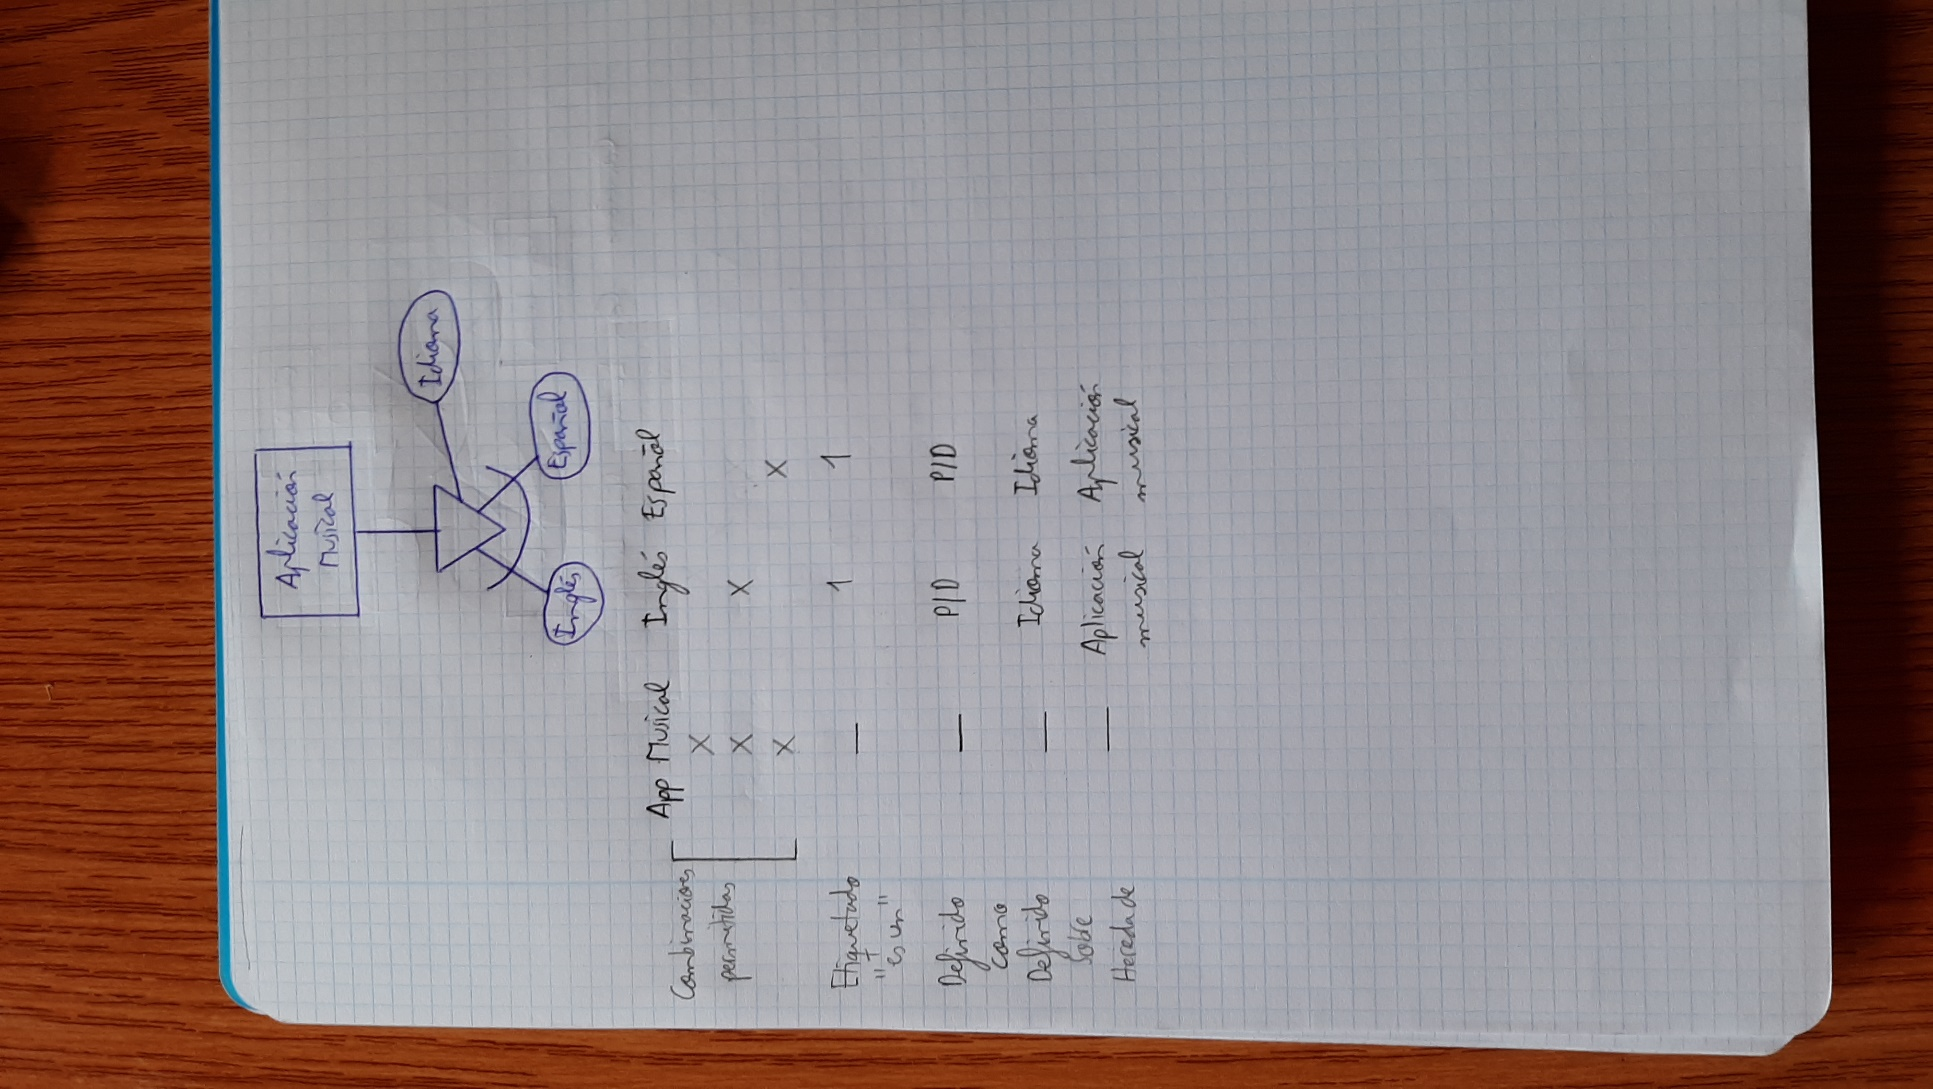 Aplicación
Musical
Idioma
Inglés
Español
App Musical Inglés Español
Combinaciones
permitidas
X
X X
X X
Etiquetado
"es un"
— 1 1
Definido
como
— P/D P/D
Definido
sobre
— Idioma Idioma
Hereda de
— Aplicación Aplicación
musical musical